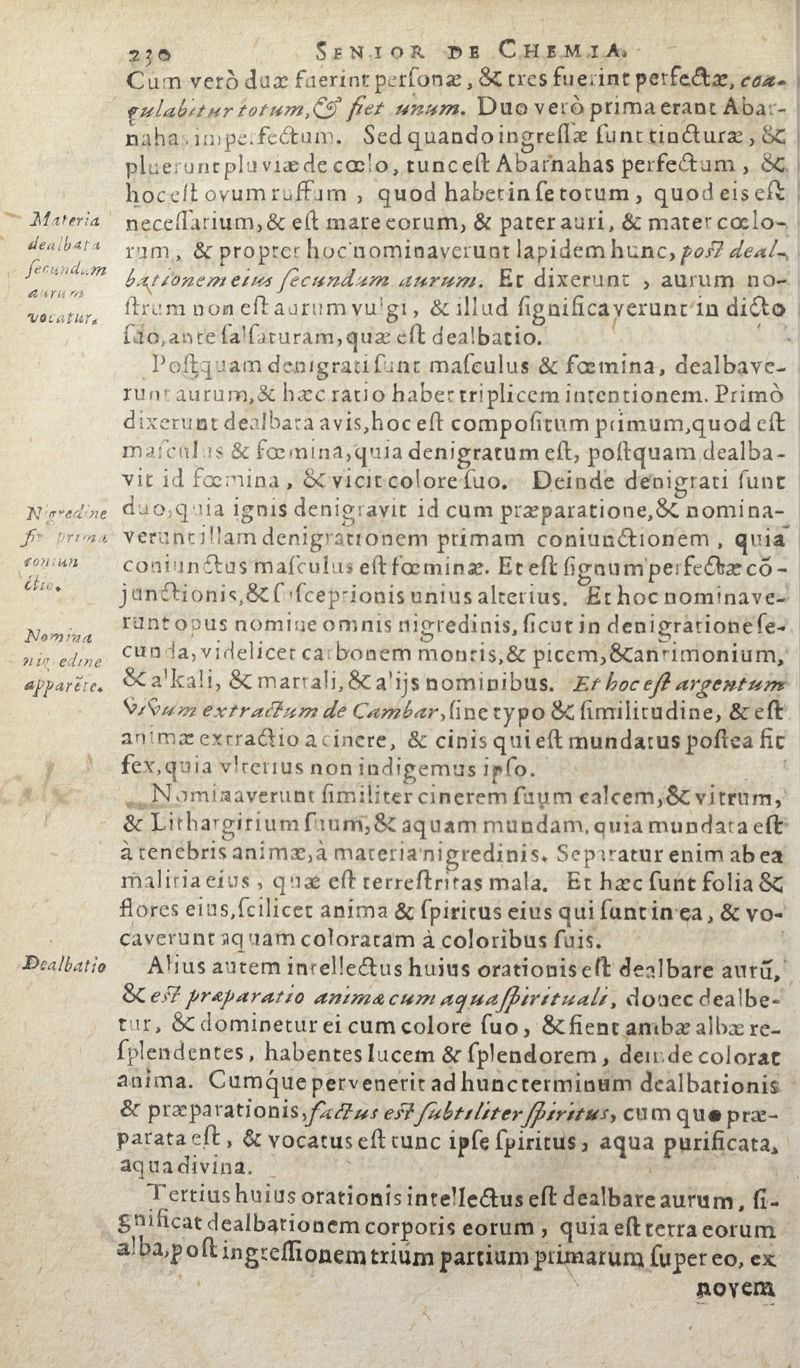 230 SENIOR DE CHEMIA.
Cum verò duæ fuerint personæ, & tres fuerint perfectæ, coa-
gulabitur totum, & fiet unum. Duo verò prima erant Abar-
naha, imperfectum. Sed quando ingressæ sunt tincturæ, &
pluerunt pluviæ de cœlo, tunc est Abarnahas perfectum, &
hoc est ovum ruffum, quod habet in se totum, quod eis est
Materia
dealbata
secundum
aurum
vocatur.
necessarium, & est mare eorum, & pater auri, & mater cœlo-
rum, & propter hoc nominaverunt lapidem hunc, post deal-
bationem eius secundum aurum. Et dixerunt, aurum no-
strum non est aurum vulgi, & illud significaverunt in dicto
suo, ante salsaturam, quæ est dealbatio.
Postquam denigrati sunt masculus & fœmina, dealbave-
runt aurum, & hæc ratio habet triplicem intentionem. Primò
dixerunt dealbata avis, hoc est compositum primum, quod est
masculus & fœmina, quia denigratum est, postquam dealba-
vit id fœmina, & vicit colore suo. Deinde denigrati sunt
Nigredine
fit prima
coniun
ctio.
duo, quia ignis denigravit id cum præparatione, & nomina-
verunt illam denigrationem primam coniunctionem, quia
coniunctus masculus est fœminæ. Et est signum perfectæ cō-
junctionis, & susceptionis unius alterius. Et hoc nominave-
Nomina
nigredine
apparēte.
runt opus nomine omnis nigredinis, sicut in denigratione se-
cunda, videlicet carbonem montis, & picem, & antimonium,
& alkali, & martali, & alijs nominibus. Et hoc est argentum
vivum extractum de Cambar, sine typo & similitudine, & est
animæ extractio à cinere, & cinis qui est mundatus postea fit
fex, quia vlterius non indigemus ipso.
Nominaverunt similiter cinerem suum calcem, & vitrum,
& Lithargirium suum, & aquam mundam, quia mundata est
à tenebris animæ, à materia nigredinis. Separatur enim ab ea
malitia eius, quæ est terrestritas mala. Et hæc sunt folia &
flores eius, scilicet anima & spiritus eius qui sunt in ea, & vo-
caverunt aquam coloratam à coloribus suis.
Dealbatio
Alius autem intellectus huius orationis est dealbare aurū,
& est præparatio animæ cum aqua spirituali, donec dealbe-
tur, & dominetur ei cum colore suo, & fient ambæ albæ re-
splendentes, habentes lucem & splendorem, deinde colorat
anima. Cumque pervenerit ad hunc terminum dealbationis
& præparationis, factus est subtiliter spiritus, cum quo præ-
parata est, & vocatus est tunc ipse spiritus, aqua purificata,
aqua divina.
Tertius huius orationis intellectus est dealbare aurum, si-
gnificat dealbationem corporis eorum, quia est terra eorum
alba, post ingressionem trium partium primarum super eo, ex
novem